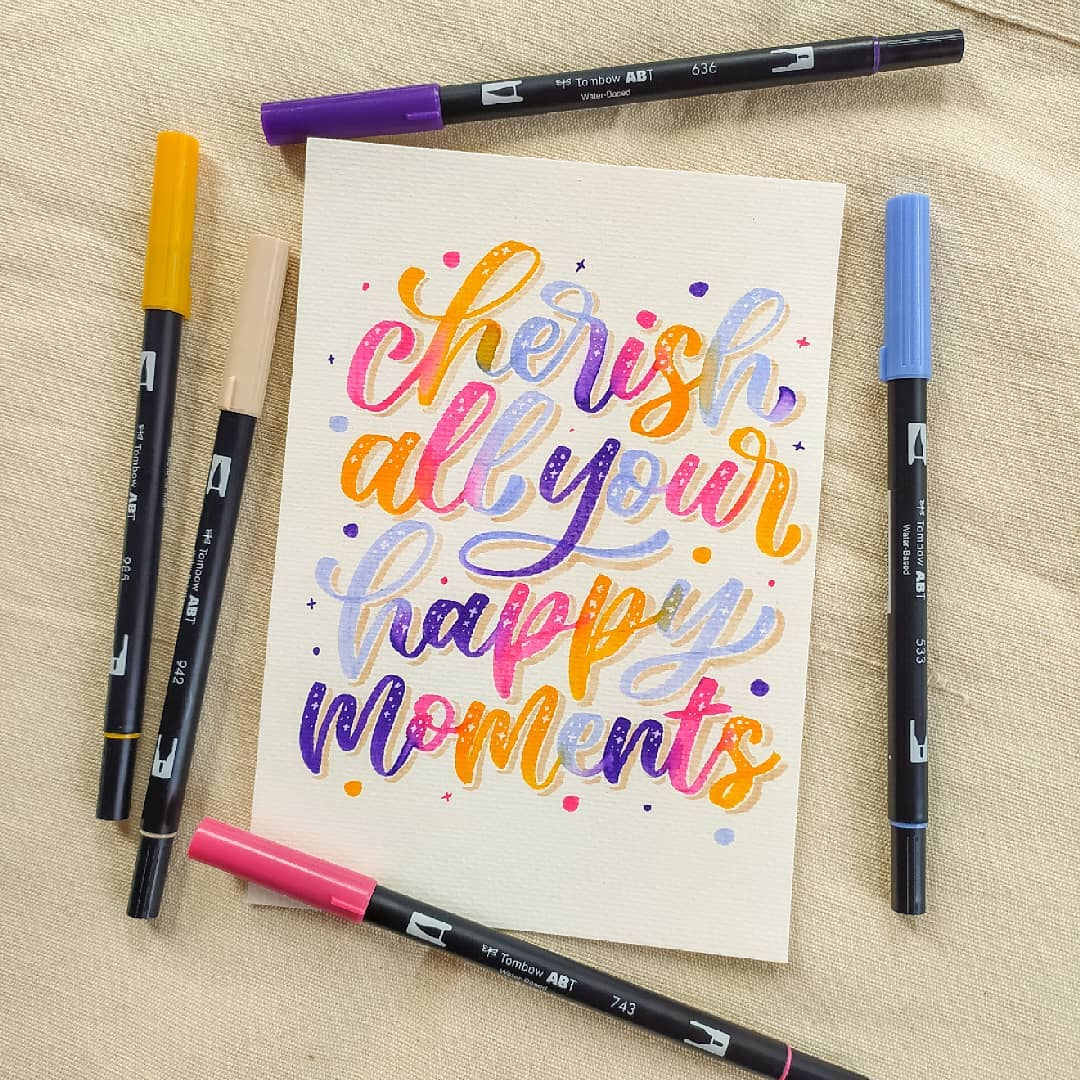 Tombow ABT 636
Water-Based
cherish
all your
happy
moments
Tombow ABT
Tombow ABT 942
Tombow ABT 533
Water-Based
Tombow ABT 743
Water-Based